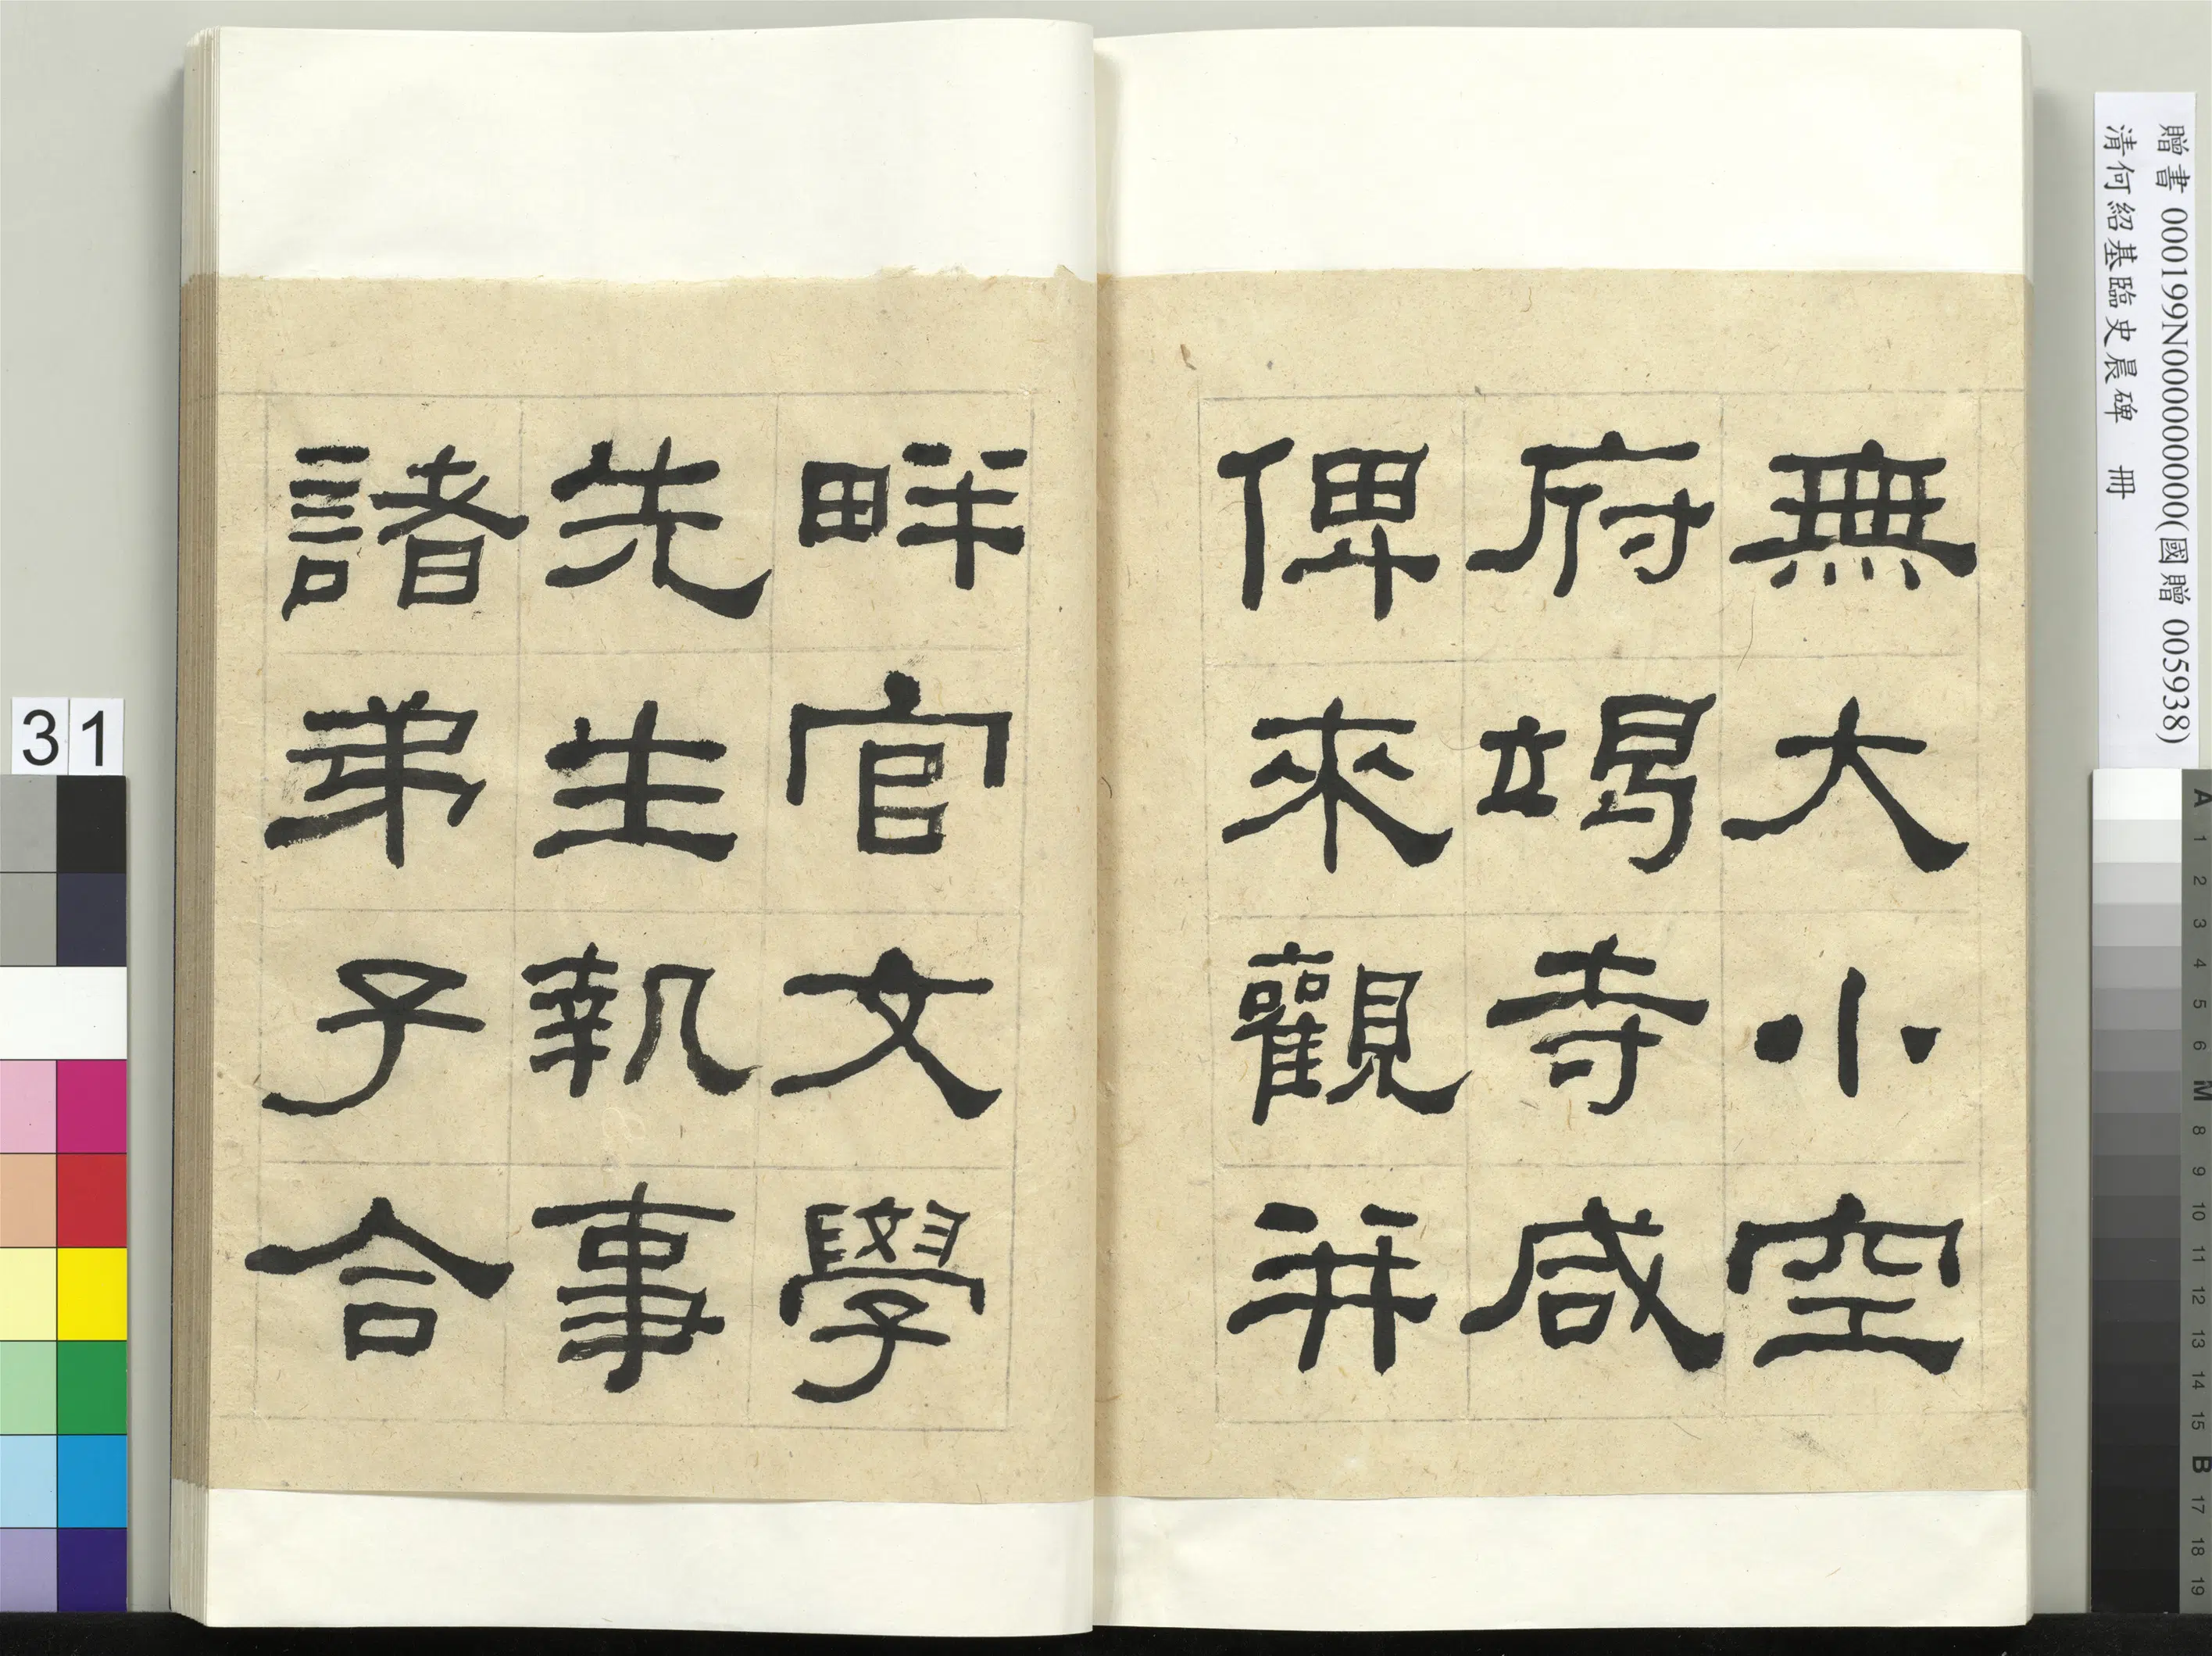 贈書 000199N000000000(國贈 005938)
清何紹基臨史晨碑 冊
無大小空
府竭寺咸
俾來觀并
畔官文學
先生執事
諸弟子合
31
A 1 2 3 4 5 6 M 8 9 10 11 12 13 14 15 B 17 18 19